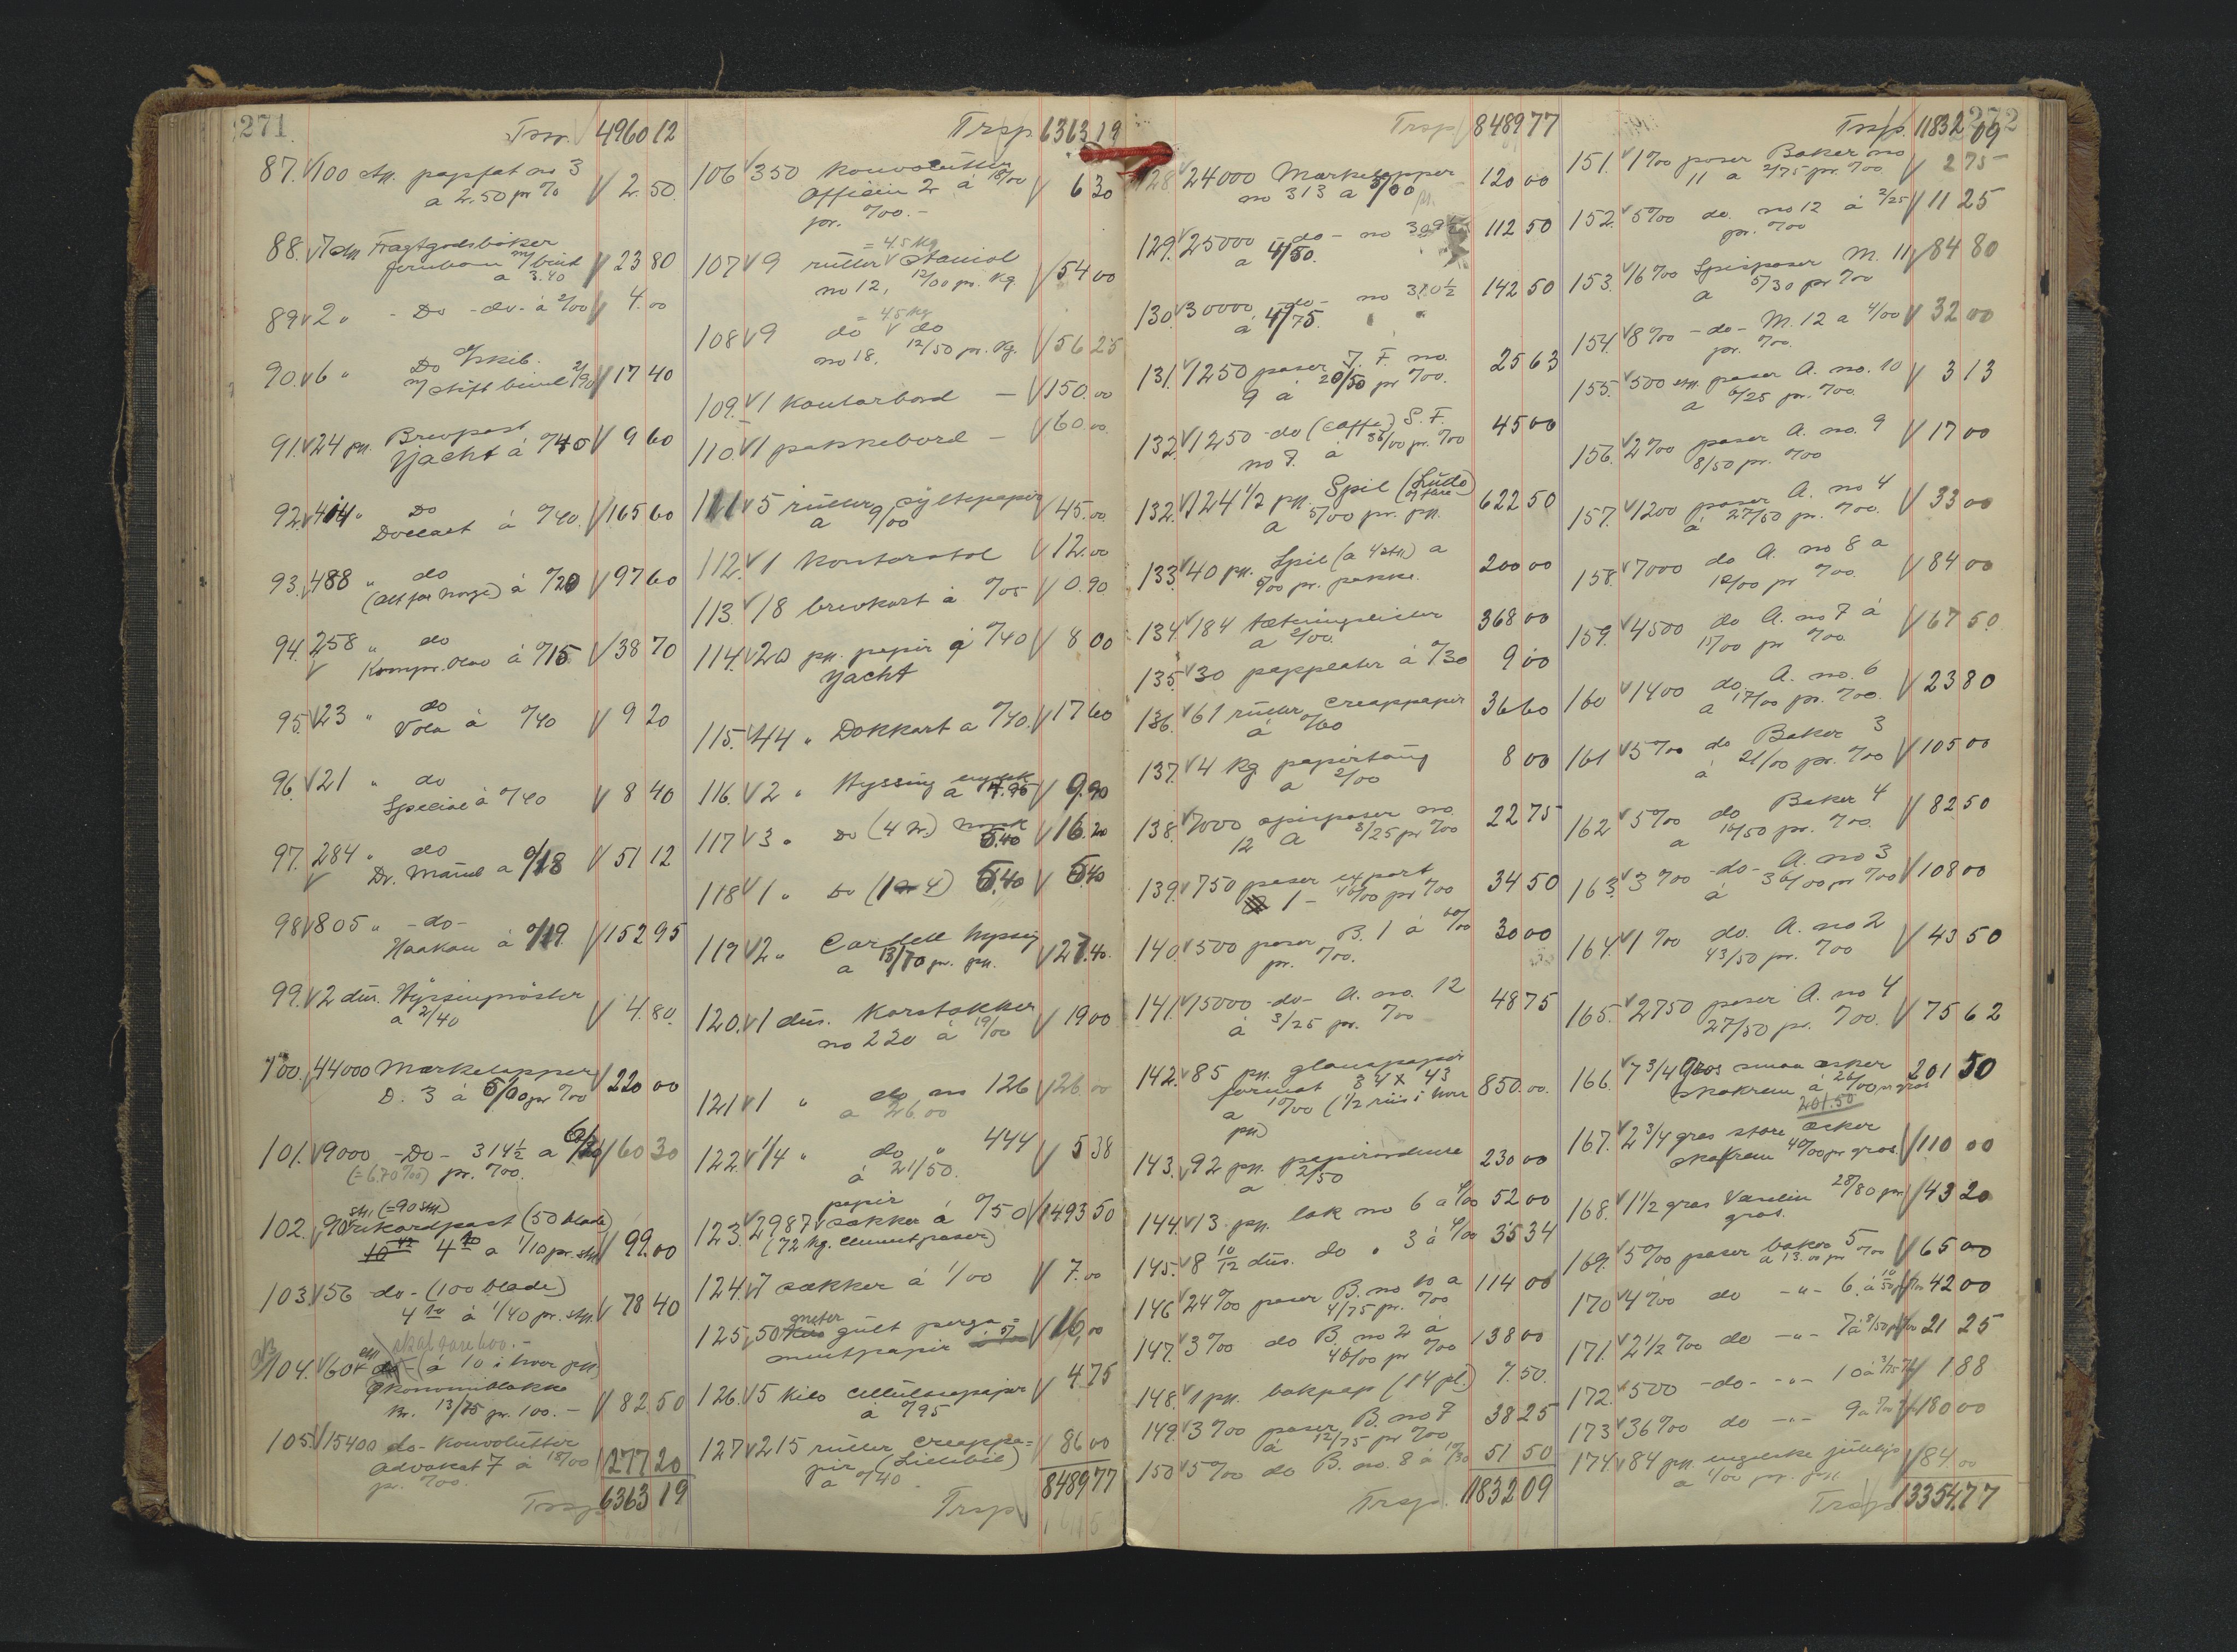 271
Trsp. 4960 12
87. 100 stk. papfat no 3
a 2.50 pr % 2.50
88. 7 stk Fragtgodsbøker
Jernbane m/ bind
a 3.40 23 80
89 2 " - Do - do - à 2/00 4.00
90. 6 " Do
m/ stift bind 2/90 17 40
91. 24 pk. Brevpost
Yacht á 0/40 9 60
92. 414 " Do
á 0/40 165 60
93. 488 " do
(alt for Norge) á 0/20 97 60
94. 258 " do
Kompr. Olav á 0/15 38 70
95. 23 " do
Vola á 0/40 9 20
96. 21 " do
Special á 0/40 8 40
97. 284 " do
Dr. Maud a 0/18 51 12
98 805 " - do -
Haakon á 0/19. 152 95
99. 2 dus. Hyssingnøster
a 2/40 4.80.
100. 44000 Merkelapper
D. 3 á 5/00 pr 0/00 220 00
101. 9000 - Do - 314½ a 60 30
(= 6.70 0/00) pr. 0/00.
102. 90 stk. (= 90 stk)
rekordpost (50 blade)
4to a 1/10 pr. stk. 99.00
103. 56 - do - (100 blade)
4to á 1/40 pr. stk. 78 40
skal være 600.-
104. 60 (á 10 i hver pk)
Økonomiblokke
Kr. 13/75 pr. 100. - 82.50
105. 15400 do - Konvolutter
Advokat 7 á 18/00
pr. 0/00. 277 20
Trsp 6363 19
Trsp 6363 19
106 350 konvolutter
Officin 2 á 18/00
pr. 0/00. - 6 30
= 4.5 kg
107 9 ruller Staniol
no 12, 12/00 pr. kg. 54 00
= 4.5 kg
108 9 do do
no 18. 12/50 pr. kg. 56 25
109. 1 Kontorbord - 150.00
110. 1 pakkebord - 60.00
111 5 ruller syltepapir
a 9/00 45.00
112. 1 Kontorstol 12.00
113. 18 brevkort á 0/05 0.90
114. 20 pk. papir á 0/40 8 00
Yacht
115. 44 " Dokkart a 0/40. 17 60
116. 2 " Hyssing engelsk
a 4.95 9.90
117 3 " Do (4 tr.) norsk
5.40 16.20
118 1 " Do 5.40 5.40
119 2 " Cordell hyssing
a 13/70 pr. pk. 27.40.
120. 1 dus. Korstakker
no 220 á 19/00 19 00
121 1 " do no 126
a 26.00 26.00
122. 1/4 " do " 444
á 21/50. 5 38
123. 2987 papir sækker á 0/50 1493 50
(72 kg. cementposer)
124. 7 sækker á 1/00 7.00
125. 50 meter gult perga=
mentpapir 16,00
126. 5 kilo cellulosepapir
á 0/95 4.75
127 215 ruller creappa=
pir (Lillebil)
a 0/40 86 00
Trsp 8489 77
Trsp 8489 77
128 24000 Merkelapper
no 313 a 5/00 120 00
129. 25000 - do - no 309½
a 4/50. 112 50
130. 30000 - do - no 310½
á 4/75. 142 50
131. 1250 poser J. F. no.
9 á 20/50 pr 0/00. 25 63
132. 1250 - do (caffe) S. F.
no 7. á 36/00 pr. 0/00 45 00
132. 124½ pk. Spil (Ludo)
a 5/00 pr. pk. 622 50
133. 40 pk. Spil (a 4 stk) a
5/00 pr. pakke. 200 00
134. 184 tætningslister
a 2/00. 368 00
135. 30 papplater á 0/30 9 00
136. 61 ruller creappapir
á 0/60 36 60
137. 4 kg papirtaug
a 2/00 8 00
138. 7000 spisposer no.
12 a 3/25 pr 0/00 22 75
139. 750 poser export
1 - 46/00 pr 0/00 34 50
140. 500 poser B. 1 á 60/00
pr. 0/00. 30 00
141. 15000 - do - A. no. 12
á 3/25 pr. 0/00 48 75
142. 85 pk. glanspapir
format 34 x 43
a 10/00 (½ riis i hver
pk) 850.00.
143. 92 pk. papirordnere
a 2/50 230 00
144. 13 pk. lak no 6 a 4/00 52 00
145. 8 10/12 dus. do " 3 á 4/00 35 34
146 24 0/00 poser B. no 10 a
4/75 pr. 0/00 114 00
147. 3 0/00 do B. no 2 á
46/00 pr 0/00 138 00
148. 1 pk. bokpap (14 pl.) 7.50.
149. 3 0/00 poser B. no 7
á 12/75 pr 0/00 38 25
150 5 0/00 do B. no. 8 á 10/30 51 50
Trsp. 11832 09
272
Trsp. 11832 09
151. 1 0/00 poser Baker no
11 a 2/75 pr. 0/00. 2 75
152. 5 0/00 do. no 12 á 2/25
pr. 0/00 11 25
153. 16 0/00 Spisposer M. 11
a 5/30 pr 0/00 84 80
154. 8 0/00 - do - M. 12 a 4/00
pr. 0/00. 32 00
155. 500 stk. poser A. no. 10
a 6/25 pr. 0/00. 3 13
156. 2 0/00 poser A. no. 9
8/50 pr. 0/00 17 00
157. 1200 poser A. no 4
á 27/50 pr. 0/00. 33 00
158. 7000 do A. no 8 a
12/00 pr 0/00. 84 00
159. 4500 do A. no 7 á
15/00 pr 0/00. 67 50.
160 1400 do A. no. 6
a 17/00 pr. 0/00. 23 80
161 5 0/00 do Baker 3
á 21/00 pr. 0/00 105 00
162 5 0/00 do Baker 4
a 16/50 pr. 0/00. 82 50
163. 3 0/00 - do - A. no 3
á 36/00 pr 0/00 108 00
164. 1 0/00 do. A. no 2
43/50 pr. 0/00 43 50
165. 2750 poser A. no 4
27/50 pr. 0/00. 75 62
166. 7 3/4 gros smaa æsker
skokrem á 26/00 pr gros 201 50
201.50
167. 2 3/4 gros store æsker
skokrem 40/00 pr gros. 110 00
168. 1½ gros Vaselin 28/80 pr
gros. 43 20
169. 5 0/00 poser baker 5
a 13.00 pr 0/00 65 00
170 4 0/00 do - " - 6. á 10/50 42 00
171. 2½ 0/00 do - " - 7 á 8/50 21 25
172. 500 - do - - " - 10 á 3/75 1 88
173 36 0/00 do - " - 9 180 00
174 84 pk. engelske julelys
a 1/00 pr. pk 84 00
Trsp 13354.77